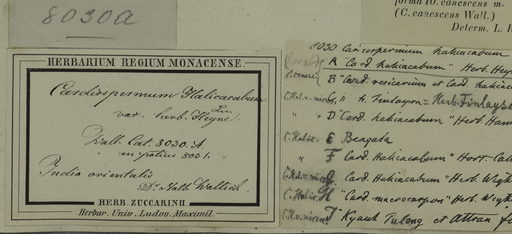 8030a
forma 10. canescens m.
(C. canescens Wall.)
Determ. L. R
HERBARIUM REGIUM MONACENSE.
Cardiospermum Halicacabum Lin
var. herb. Heyne
Wall. Cat. 8030. A
India orientalis
Dr. Nath. Wallich.
HERB. ZUCCARINII
Herbar. Univ. Ludov. Maximil.
8030 Cardiospermum halicacabum
A "Card halicacabum" Herb. Hey
B "Card. vesicarium et Card halicac
C " H. Finlayson = Herb. Finlayso
" D "Card. halicacabum" Herb. Ham
E Bengala
" F "Card. Halicacabum" Hort. Cal
G "Card. Halicacabum" Herb. Wigh
H "Card macrocarpon" Herb. Wigh
I "Kyauk Tulong et Attran fl